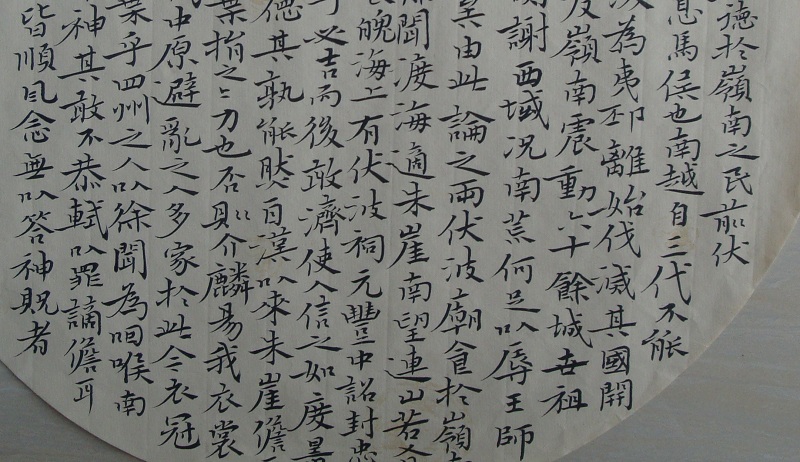 德於嶺南之民前伏
息馬侯也南越自三代不能
為夷邳離始伐滅其國開
反嶺南震動六十餘城世祖
謝西域况南荒何足以辱王師
矣由此論之兩伏波廟食於嶺南
聞渡海適朱崖南望連山若有
魄海上有伏波祠元豐中詔封忠
乎必吉而後敢濟使人信之如度量
德其孰能然自漢以來朱崖儋耳
棄捐之之力也否則介麟易我衣裳
中原避亂之人多家於此今衣冠
棄乎四州之人以徐聞為咽喉南
神其敢不恭軾以罪謫儋耳
皆順風念無以答神貺者